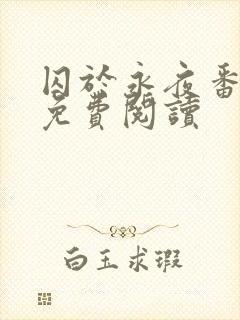 囚於永夜番
免費閱讀
白玉求瑕